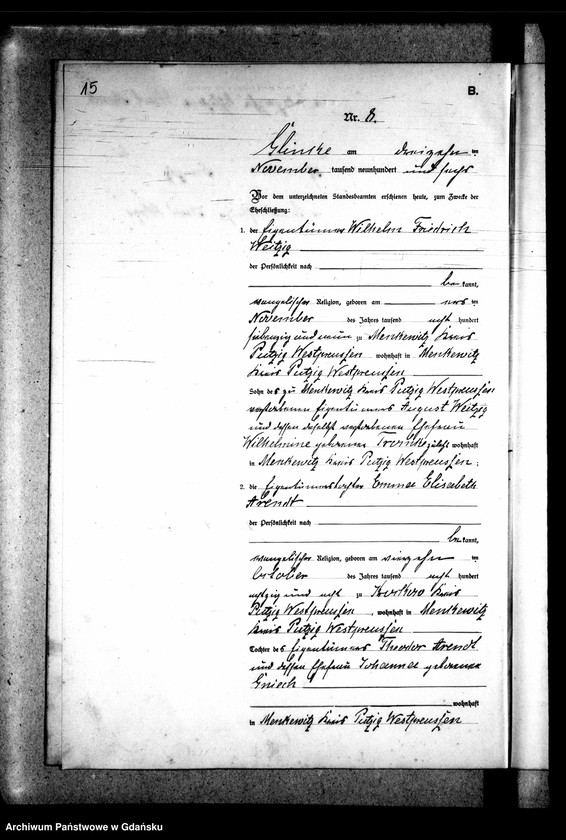 15
B.
Nr. 8.
Glinke am dreizehn ten
November tausend neunhundert und sechs
Vor dem unterzeichneten Standesbeamten erschienen heute, zum Zwecke der
Eheschließung:
1. der Eigentümer Wilhelm Friedrich
Weitzig
der Persönlichkeit nach
be kannt,
evangelischer Religion, geboren am ten
November des Jahres tausend acht hundert
siebenzig und neun zu Menkewitz Kreis
Putzig Westpreussen wohnhaft in Menkewitz
Kreis Putzig Westpreussen
Sohn des zu Menkewitz Kreis Putzig Westpreussen
verstorbenen Eigentümers August Weitzig
und dessen daselbst verstorbenen Ehefrau
Wilhelmine geborenen zuletzt wohnhaft
in Menkewitz Kreis Putzig Westpreussen;
2. die Eigentümerstochter Emma Elisabeth
Arendt
der Persönlichkeit nach
be kannt,
evangelischer Religion, geboren am vierzehn ten
October des Jahres tausend acht hundert
achtzig und acht zu Kreis
Putzig Westpreussen, wohnhaft in Menkewitz
Kreis Putzig Westpreussen
Tochter des Eigentümers Theodor Arendt
und dessen Ehefrau Johanna geborenen
wohnhaft
in Menkewitz Kreis Putzig Westpreussen
Archiwum Państwowe w Gdańsku